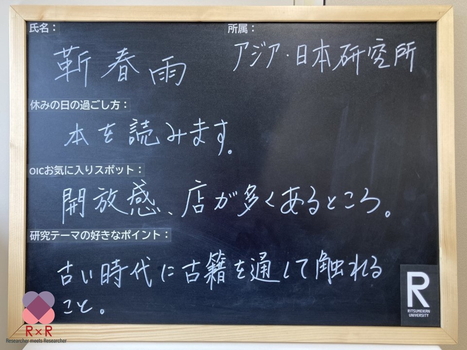 氏名： 所属：
靳春雨 アジア・日本研究所
休みの日の過ごし方：
本を読みます。
OICお気に入りスポット：
開放感、店が多くあるところ。
研究テーマの好きなポイント：
古い時代に古籍を通して触れる
こと。
R×R
Researcher meets Researcher
R
RITSUMEIKAN
UNIVERSITY